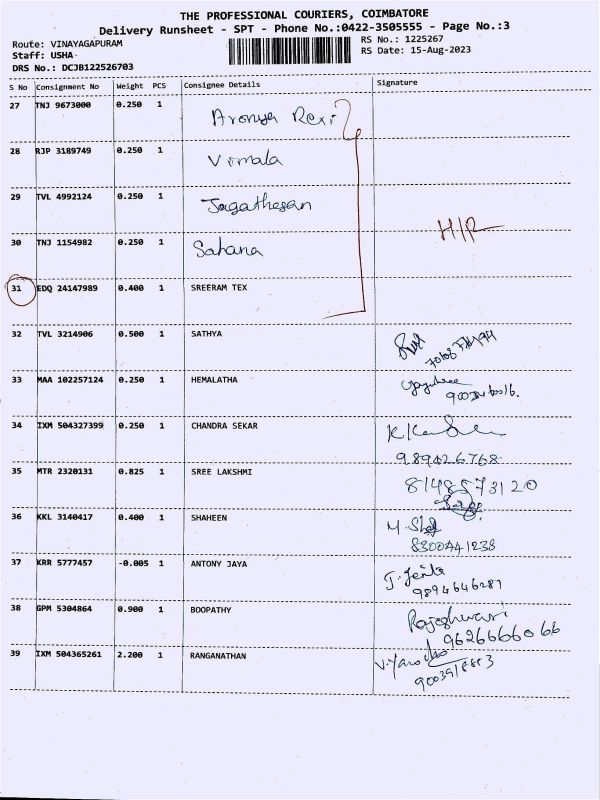 THE PROFESSIONAL COURIERS, COIMBATORE
Delivery Runsheet - SPT - Phone No.:0422-3505555 - Page No.:3
Route: VINAYAGAPURAM RS No.: 1225267
Staff: USHA RS Date: 15-Aug-2023
DRS No.: DCJB122526703
S No Consignment No Weight PCS Consignee Details Signature
27 TNJ 9673000 0.250 1 Aronya Rexi
28 RJP 3189749 0.250 1 Vimala
29 TVL 4992124 0.250 1 Jagathesan
30 TNJ 1154982 0.250 1 Sahana H/R
31 EDQ 24147989 0.400 1 SREERAM TEX
32 TVL 3214906 0.500 1 SATHYA
33 MAA 102257124 0.250 1 HEMALATHA
34 IXM 504327399 0.250 1 CHANDRA SEKAR
989426768
35 MTR 2320131 0.825 1 SREE LAKSHMI 8148573120
36 KKL 3140417 0.400 1 SHAHEEN
8300441238
37 KRR 5777457 -0.005 1 ANTONY JAYA
9894646281
38 GPM 5304864 0.900 1 BOOPATHY Rajeshwari
9626666066
39 IXM 504365261 2.200 1 RANGANATHAN